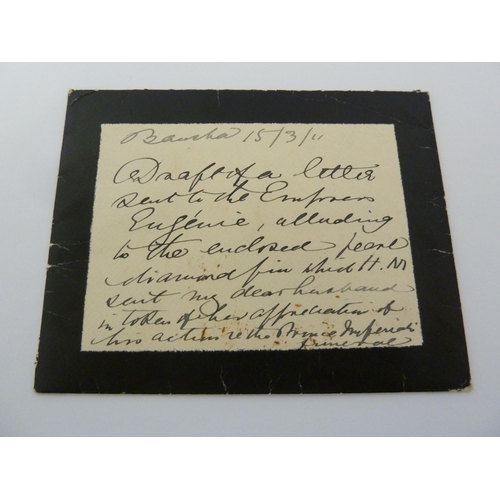 Bansha 15/3/11
Draft of a letter
sent to the Empress
Eugénie, alluding
to the enclosed pearl
diamond pin which H.M
sent my dear husband
in token of her appreciation of
his action re the Prince Imperial's
funeral